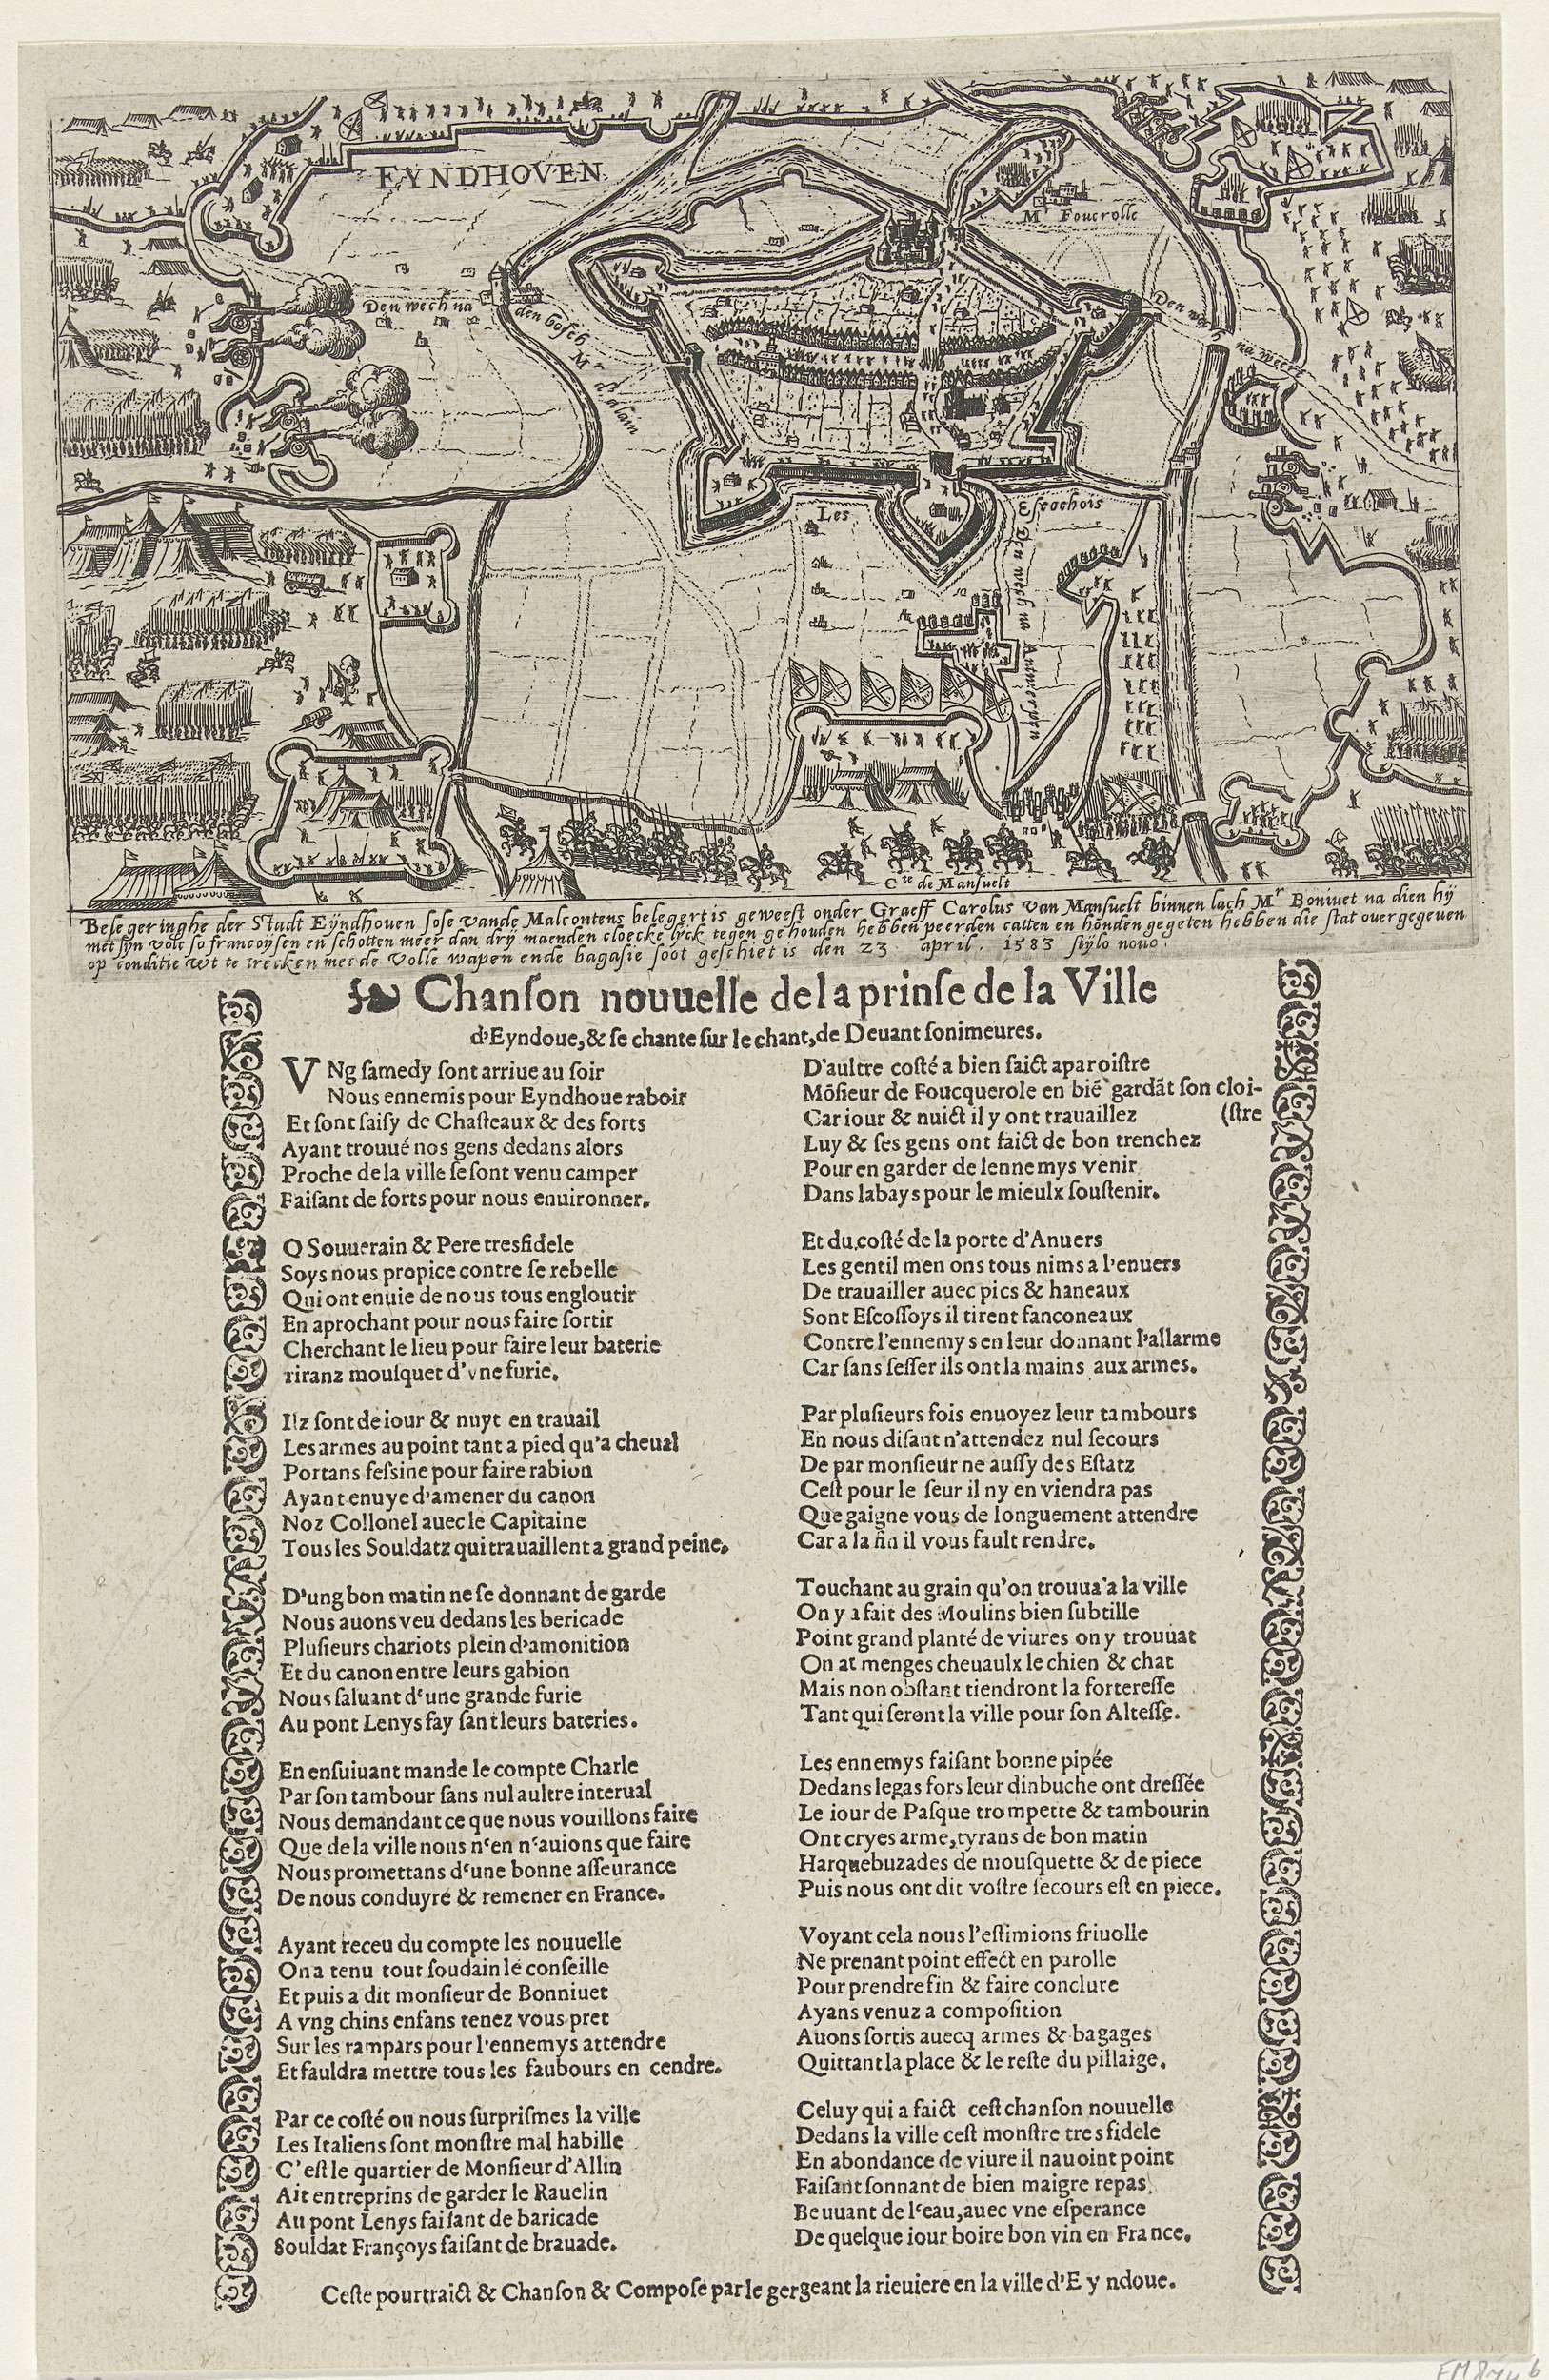 EYNDHOVEN
Mr Fouerolle
Den wech na
den bosch
Mr
Den
na weert
Les
Escochois
Den wech na Antwerpen
Cte de Mansuelt
Belegeringhe der Stadt Eijndhouen sose vande Malcontens belegert is geweest onder Graeff Carolus van Mansuelt binnen lach Mr Boniuet na dien hij
met sijn volc so francoijsen en schotten meer dan drij maenden cloeckelijck tegen gehouden hebben peerden catten en honden gegeten hebben die stat ouergegeuen
op conditie wt te trecken met de volle wapen ende bagasie soot geschiet is den 23 april. 1583 stijlo nouo.
Chanſon nouuelle de la prinſe de la Ville
d'Eyndoue, & ſe chante ſur le chant, de Deuant ſonimeures.
VNg ſamedy ſont arriue au ſoir
Nous ennemis pour Eyndhoue raboir
Et ſont ſaiſy de Chaſteaux & des forts
Ayant trouué nos gens dedans alors
Proche de la ville ſe ſont venu camper
Faiſant de forts pour nous enuironner.
O Souuerain & Pere tresfidele
Soys nous propice contre ſe rebelle
Qui ont enuie de nous tous engloutir
En aprochant pour nous faire ſortir
Cherchant le lieu pour faire leur baterie
riranz mouſquet d'vne furie.
Ilz ſont de iour & nuyt en trauail
Les armes au point tant a pied qu'a cheual
Portans feſsine pour faire rabion
Ayant enuye d'amener du canon
Noz Collonel auec le Capitaine
Tous les Souldatz qui trauaillent a grand peine.
D'ung bon matin ne ſe donnant de garde
Nous auons veu dedans les bericade
Pluſieurs chariots plein d'amonition
Et du canon entre leurs gabion
Nous ſaluant d'une grande furie
Au pont Lenys fay ſant leurs bateries.
En enſuiuant mande le compte Charle
Par ſon tambour ſans nul aultre interual
Nous demandant ce que nous vouillons faire
Que de la ville nous n'en n'auions que faire
Nous promettans d'une bonne aſſeurance
De nous conduyre & remener en France.
Ayant receu du compte les nouuelle
On a tenu tout ſoudain le conſeille
Et puis a dit monſieur de Bonniuet
A vng chins enfans tenez vous pret
Sur les rampars pour l'ennemys attendre
Et fauldra mettre tous les faubours en cendre.
Par ce coſté ou nous ſurpriſmes la ville
Les Italiens ſont monſtre mal habille
C'eſt le quartier de Monſieur d'Allin
Ait entreprins de garder le Rauelin
Au pont Lenys faiſant de baricade
Souldat Françoys faiſant de brauade.
D'aultre coſté a bien faict aparoiſtre
Mõſieur de Foucquerole en bié gardãt ſon cloi-
Car iour & nuict il y ont trauaillez (ſtre
Luy & ſes gens ont faict de bon trenchez
Pour en garder de lennemys venir
Dans labays pour le mieulx ſouſtenir.
Et du coſté de la porte d'Anuers
Les gentil men ons tous nims a l'enuers
De trauailler auec pics & haneaux
Sont Eſcoſſoys il tirent fanconeaux
Contre l'ennemys en leur donnant l'allarme
Car ſans ſeſſer ils ont la mains aux armes.
Par pluſieurs fois enuoyez leur tambours
En nous diſant n'attendez nul ſecours
De par monſieur ne auſſy des Eſtatz
Ceſt pour le ſeur il ny en viendra pas
Que gaigne vous de longuement attendre
Car a la fin il vous fault rendre.
Touchant au grain qu'on trouua a la ville
On y a fait des Moulins bien ſubtille
Point grand planté de viures on y trouuat
On at menges cheuaulx le chien & chat
Mais non obſtant tiendront la fortereſſe
Tant qui ſeront la ville pour ſon Alteſſe.
Les ennemys faiſant bonne pipée
Dedans legas fors leur dinbuche ont dreſſée
Le iour de Paſque trompette & tambourin
Ont cryes arme, tyrans de bon matin
Harquebuzades de mouſquette & de piece
Puis nous ont dit voſtre ſecours eſt en piece.
Voyant cela nous l'eſtimions friuolle
Ne prenant point effect en parolle
Pour prendre fin & faire conclure
Ayans venuz a compoſition
Auons ſortis auecq armes & bagages
Quittant la place & le reſte du pillaige.
Celuy qui a faict ceſt chanſon nouuelle
Dedans la ville ceſt monſtre tres fidele
En abondance de viure il nauoint point
Faiſant ſonnant de bien maigre repas
Beuuant de l'eau, auec vne eſperance
De quelque iour boire bon vin en France.
Ceſte pourtraict & Chanſon & Compoſe par le gergeant la rieuiere en la ville d'Eyndoue.